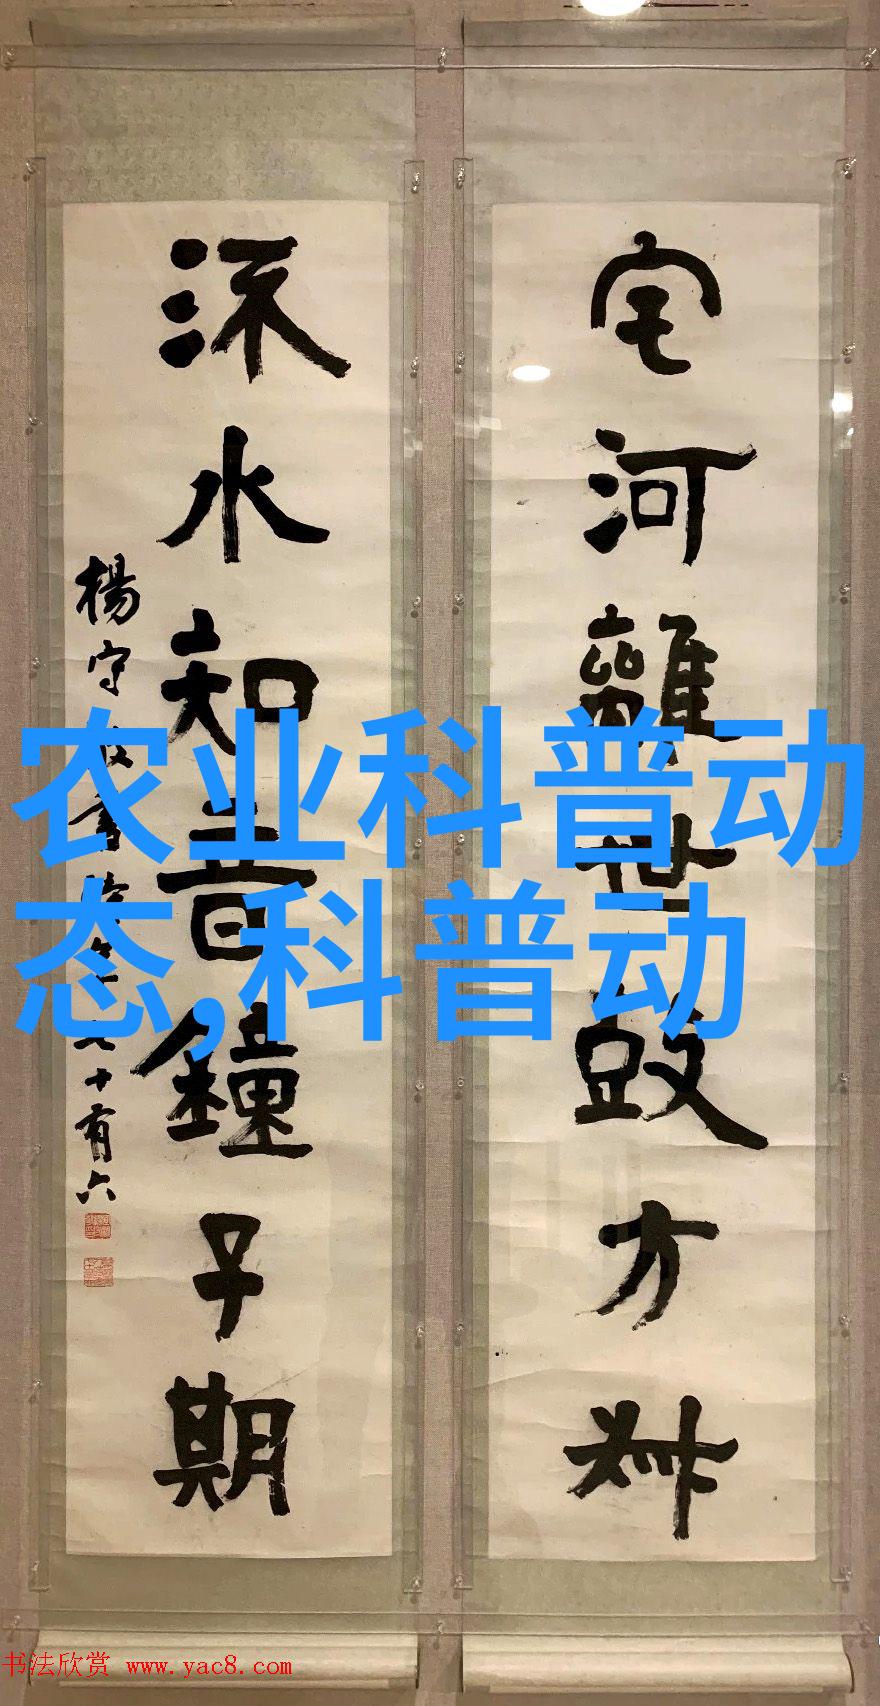 宅河離世鼓方叔
流水知音鐘子期
楊守敬書時年七十有六
农业科普动
态,科普动
书法欣赏 www.yac8.com